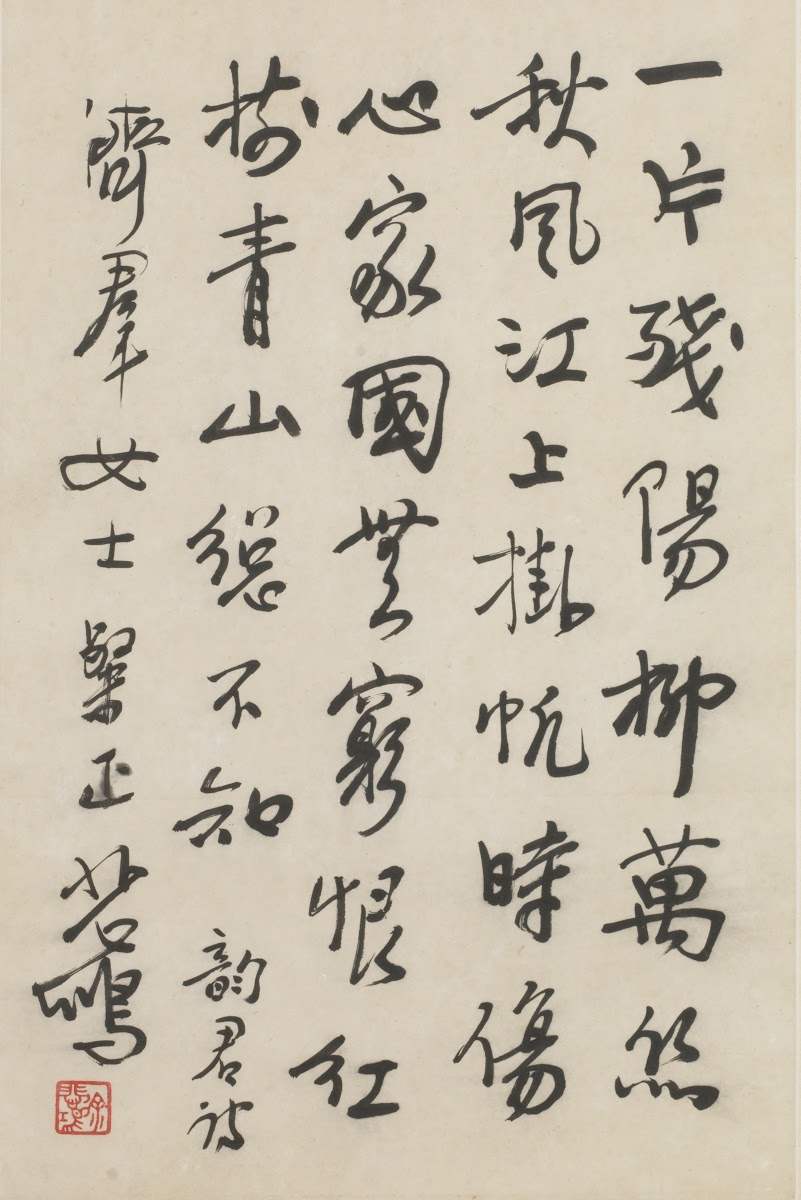 一片殘陽柳萬絲
秋風江上掛帆時傷
心家國無窮恨紅
樹青山總不知
韵君詩
濟羣女士粲正 悲鴻
徐悲鴻